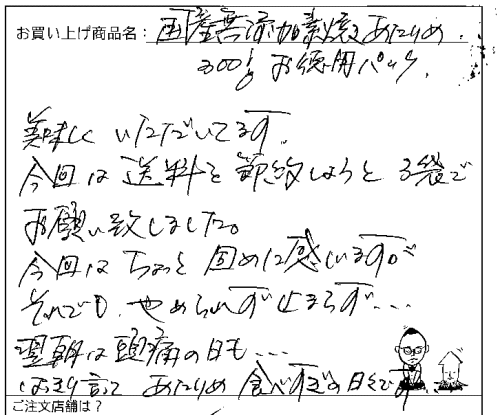 お買い上げ商品名：国産無添加素焼きあたりめ、
300g お徳用パック、
美味しく いただいてます。
今回は 送料を 節約しようと 3袋で
お願い致しました。
今回は ちょっと 固めに感じますが
それでも、やめられず 止まらず…
翌朝は 頭痛の日も…
はっきり言って あたりめ 食べすぎの 日々です
ご注文店舗は？